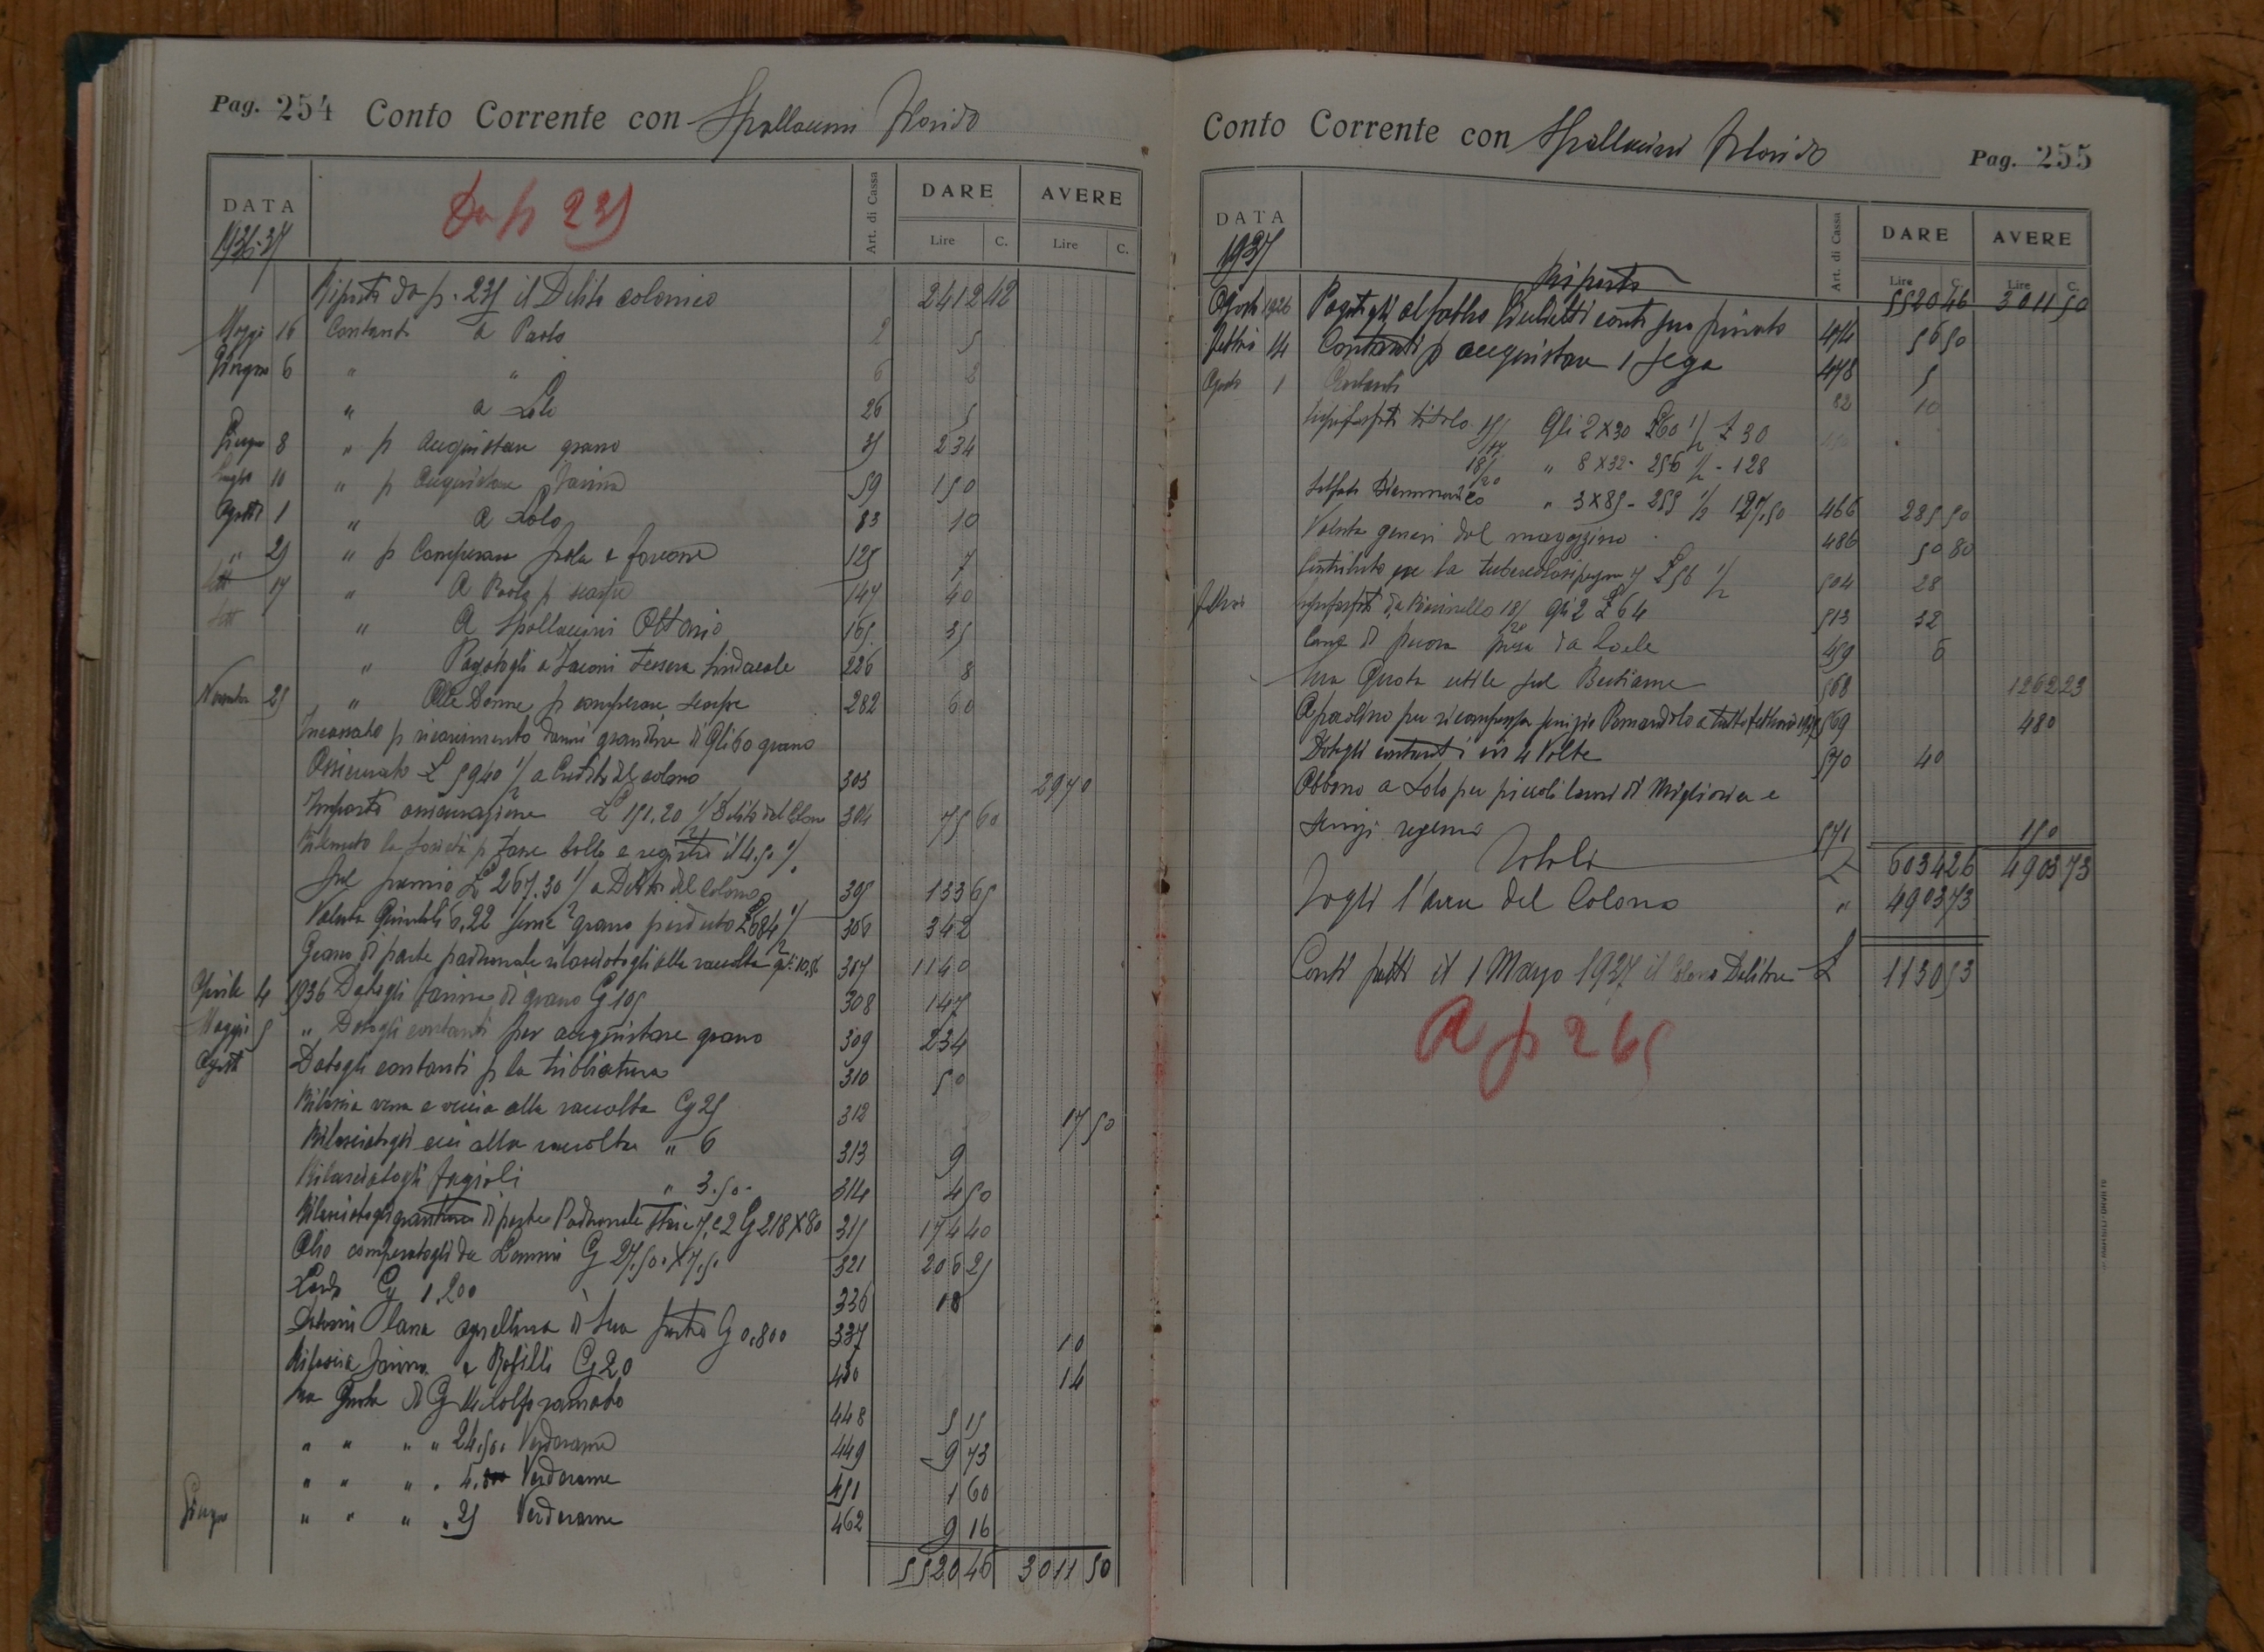 Pag. 254 Conto Corrente con Spallaccini Florido
DATA
1936-37
Da p 235
Art. di Cassa
DARE
AVERE
Lire C. Lire C.
Riporto da p. 235 il Debito colonico 2412 42
Maggio 16 Contanti a Paolo 2 5
Giugno 6 " " 6 8
" a Lolo 26 5
Giugno 8 " p acquistare grano 35 234
Luglio 10 " p acquistare farina 59 150
Agosto 1 " a Lolo 83 10
" 25 " p Comperare 125 7
Sett 17 " A Paolo p scarpe 147 40
Sett " A Spallaccini Ottavio 165 35
" Pagatogli a Iaconi Tessera Sindacale 226 8
Novembre 25 " Alle Donne p comperare scarpe 282 60
Incassato p risarcimento danni grandine di Qli 60 grano
Assicurato £ 5940 ½ a Credito del colono 303 2970
Importo assicurazione £ 151.20 ½ Debito del Colono 304 75 60
Ritenuto la Società p tasse bollo e registro il 4.50 %
Sul premio £ 267.30 ½ a Debito del Colono 305 133 65
Valuta Quintali 6,22 seme grano perduto £ 684 ½ 306 342
Grano di parte padronale rilasciatogli alla raccolta 307 1140
Aprile 4 1936 Datogli farina di grano Cg 105 308 147
Maggio 5 " Datogli contanti per acquistare grano 309 234
Agosto Datogli contanti p la tribbiatura 310 50
Rilascia vena e veccia alla raccolta Cg 25 312 17 50
Rilasciatogli ceci alla raccolta " 6 313 9
Rilasciatogli fagioli " 3.50 314 4 50
Rilasciatogli granturco di parte Padronale Staie 7, e 2 Cg 218 X 80 315 174 40
Olio comperatogli da Lemmi Cg 27.50 X 7.50 321 206 25
Lardo Cg 1,200 336 18
Datomi lana agnellina di sua parte Cg 0,800 337 10
Rilascia farina a Rosilli Cg 20 430 14
Sua Quota di Cg 14 Solfo ramato 448 5 15
" " " " 24.50 Verderame 449 9 73
" " " " Verderame 451 1 60
Giugno " " " " 25 Verderame 462 9 16
5520 46 3011 50
Conto Corrente con Spallaccini Florido Pag. 255
DATA
1937
Art. di Cassa
DARE
AVERE
Lire C. Lire C.
Riporto 5520 46 3011 50
Agosto 1936 Pagatogli al fabbro Giulietti conto suo privato 474 56 50
Febbrio 14 Contanti p acquistare 1 sega 478 5
Agosto 1 Contanti 82 10
Superfosfati titolo 15/17 Qli 2 X 30 £ 60 ½ £ 30
18/20 " 8 X 32 - 256 ½ - 128
Solfato Biammonico " 3 X 85 - 255 ½ 127,50 466 285 50
Valuta generi dal magazzino 486 50 80
Contributo per la tubercolosi £ 56 ½ 504 28
Febbraio Superfosfati da 18/20 Qli 2 £ 64 513 32
Carne di pecora presa da Loele 459 6
Sua Quota utile sul Bestiame 568 1262 23
A paolino per ricompensa a tutto febbraio 1937 569 480
Datogli contanti in 4 Volte 570 40
Abbono a Lolo per piccoli lavori di Miglioria e
571 150
Totali £ 6034 26 4903 73
Togli l'avere del Colono " 4903 73
Conti fatti il 1 Maggio 1937 il Colono Debitore £ 1130 53
A p 265